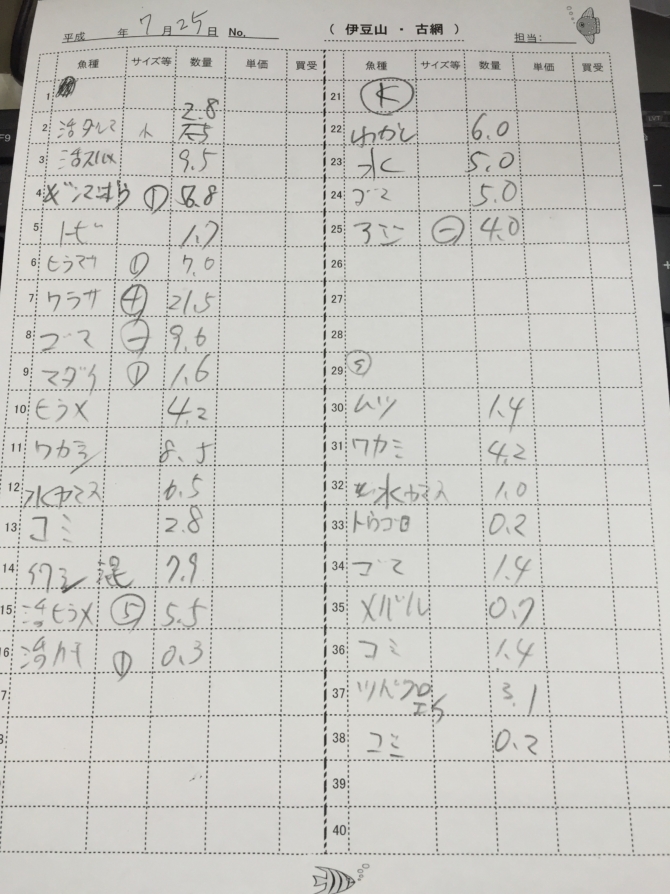 平成 年 7 月 25 日 No. ( 伊豆山 ・ 古網 ) 担当:
魚種 サイズ等 数量 単価 買受 魚種 サイズ等 数量 単価 買受
1
2 活ダルマ 小 2.8
3 活スルメ 9.5
4 ギンマナガ ① 6.8
5 トビ 1.7
6 ヒラマサ ① 7.0
7 ワラサ ④ 21.5
8 ゴマ ㊀ 9.6
9 マダイ ① 1.6
10 ヒラメ 4.2
11 ワカシ 8.5
12 水カマス 6.5
13 コミ 2.8
14 イワシ 混 7.9
15 活ヒラメ ⑤ 5.5
16 活カナ ① 0.3
7
8
21 K
22 わかし 6.0
23 水C 5.0
24 ゴマ 5.0
25 マジ ㊀ 4.0
26
27
28
29 ⑤
30 ムツ 1.4
31 ワカシ 4.2
32 水カマス 1.0
33 トウゴロ 0.2
34 ゴマ 1.4
35 メバル 0.7
36 コミ 1.4
37 ツバクロエイ 3.1
38 コミ 0.2
39
40